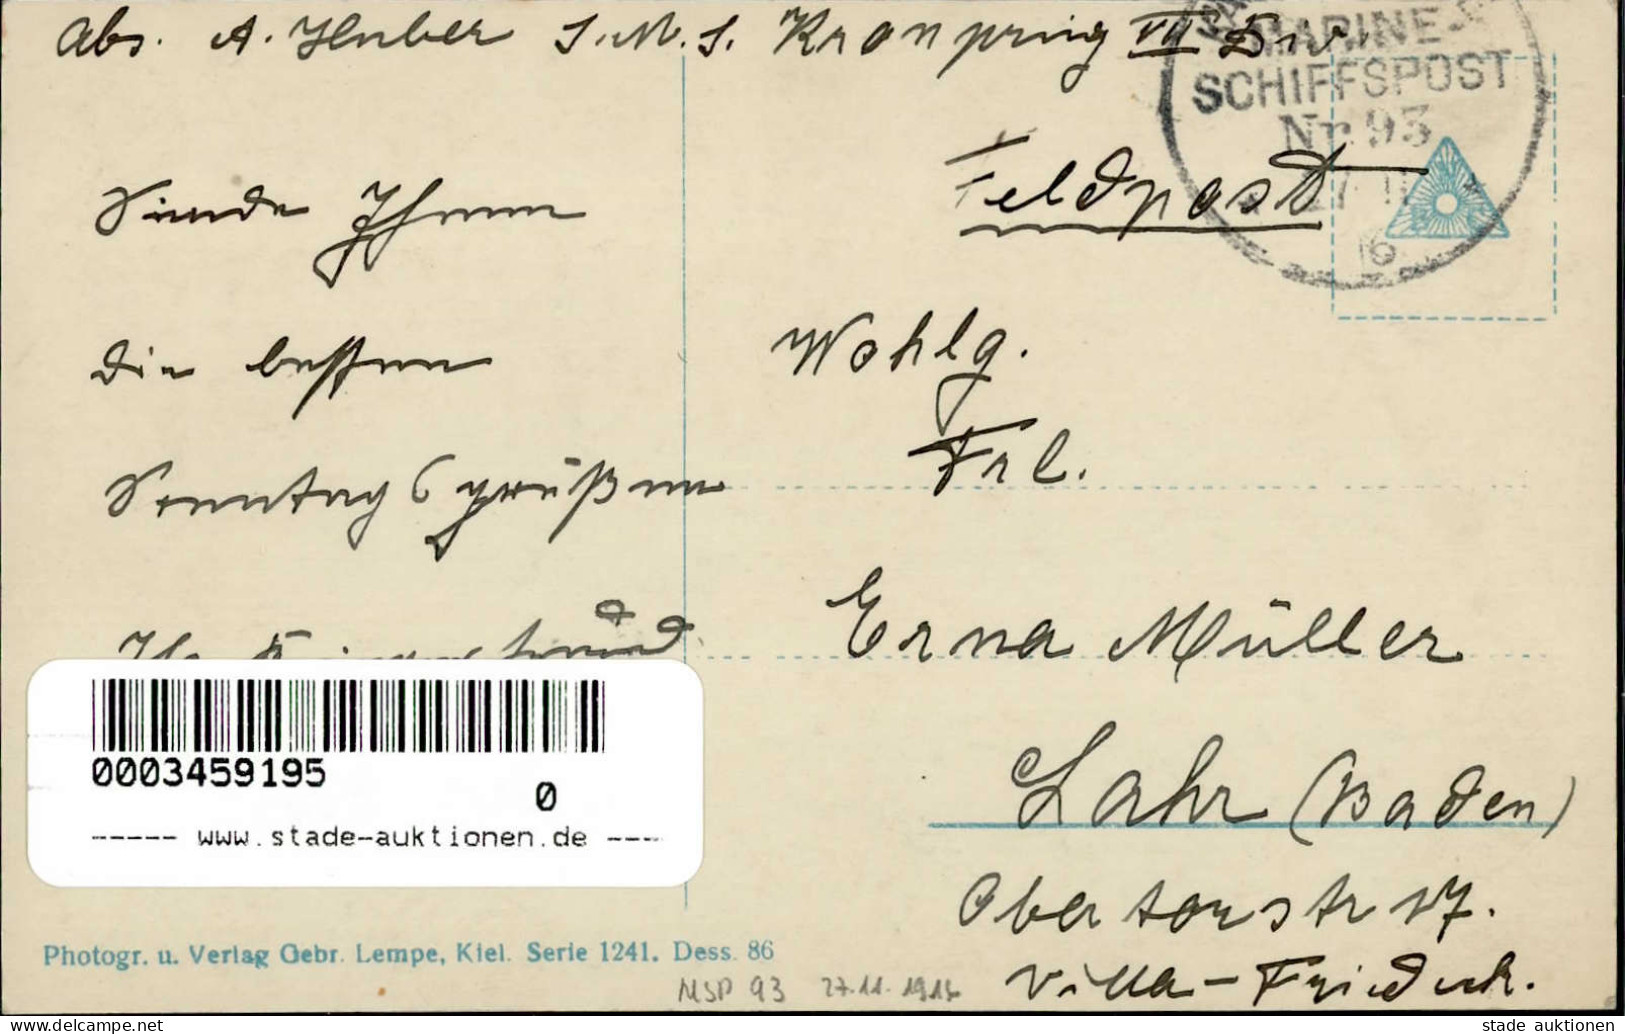 Abs. A. Huber S.M.S. Kronprinz VII Div.
MARINE-
SCHIFFSPOST
Nr. 93
Feldpost
Sende Ihnen
die besten
Sonntagsgrüße
Wohlg.
Frl.
Erna Müller
Lahr (Baden)
Obertorstr 17.
Villa-Friedrich.
0003459195
0
----- www.stade-auktionen.de ----
Photogr. u. Verlag Gebr. Lempe, Kiel. Serie 1241. Dess. 86
MSP 93 27.11.1916
stade auktionen